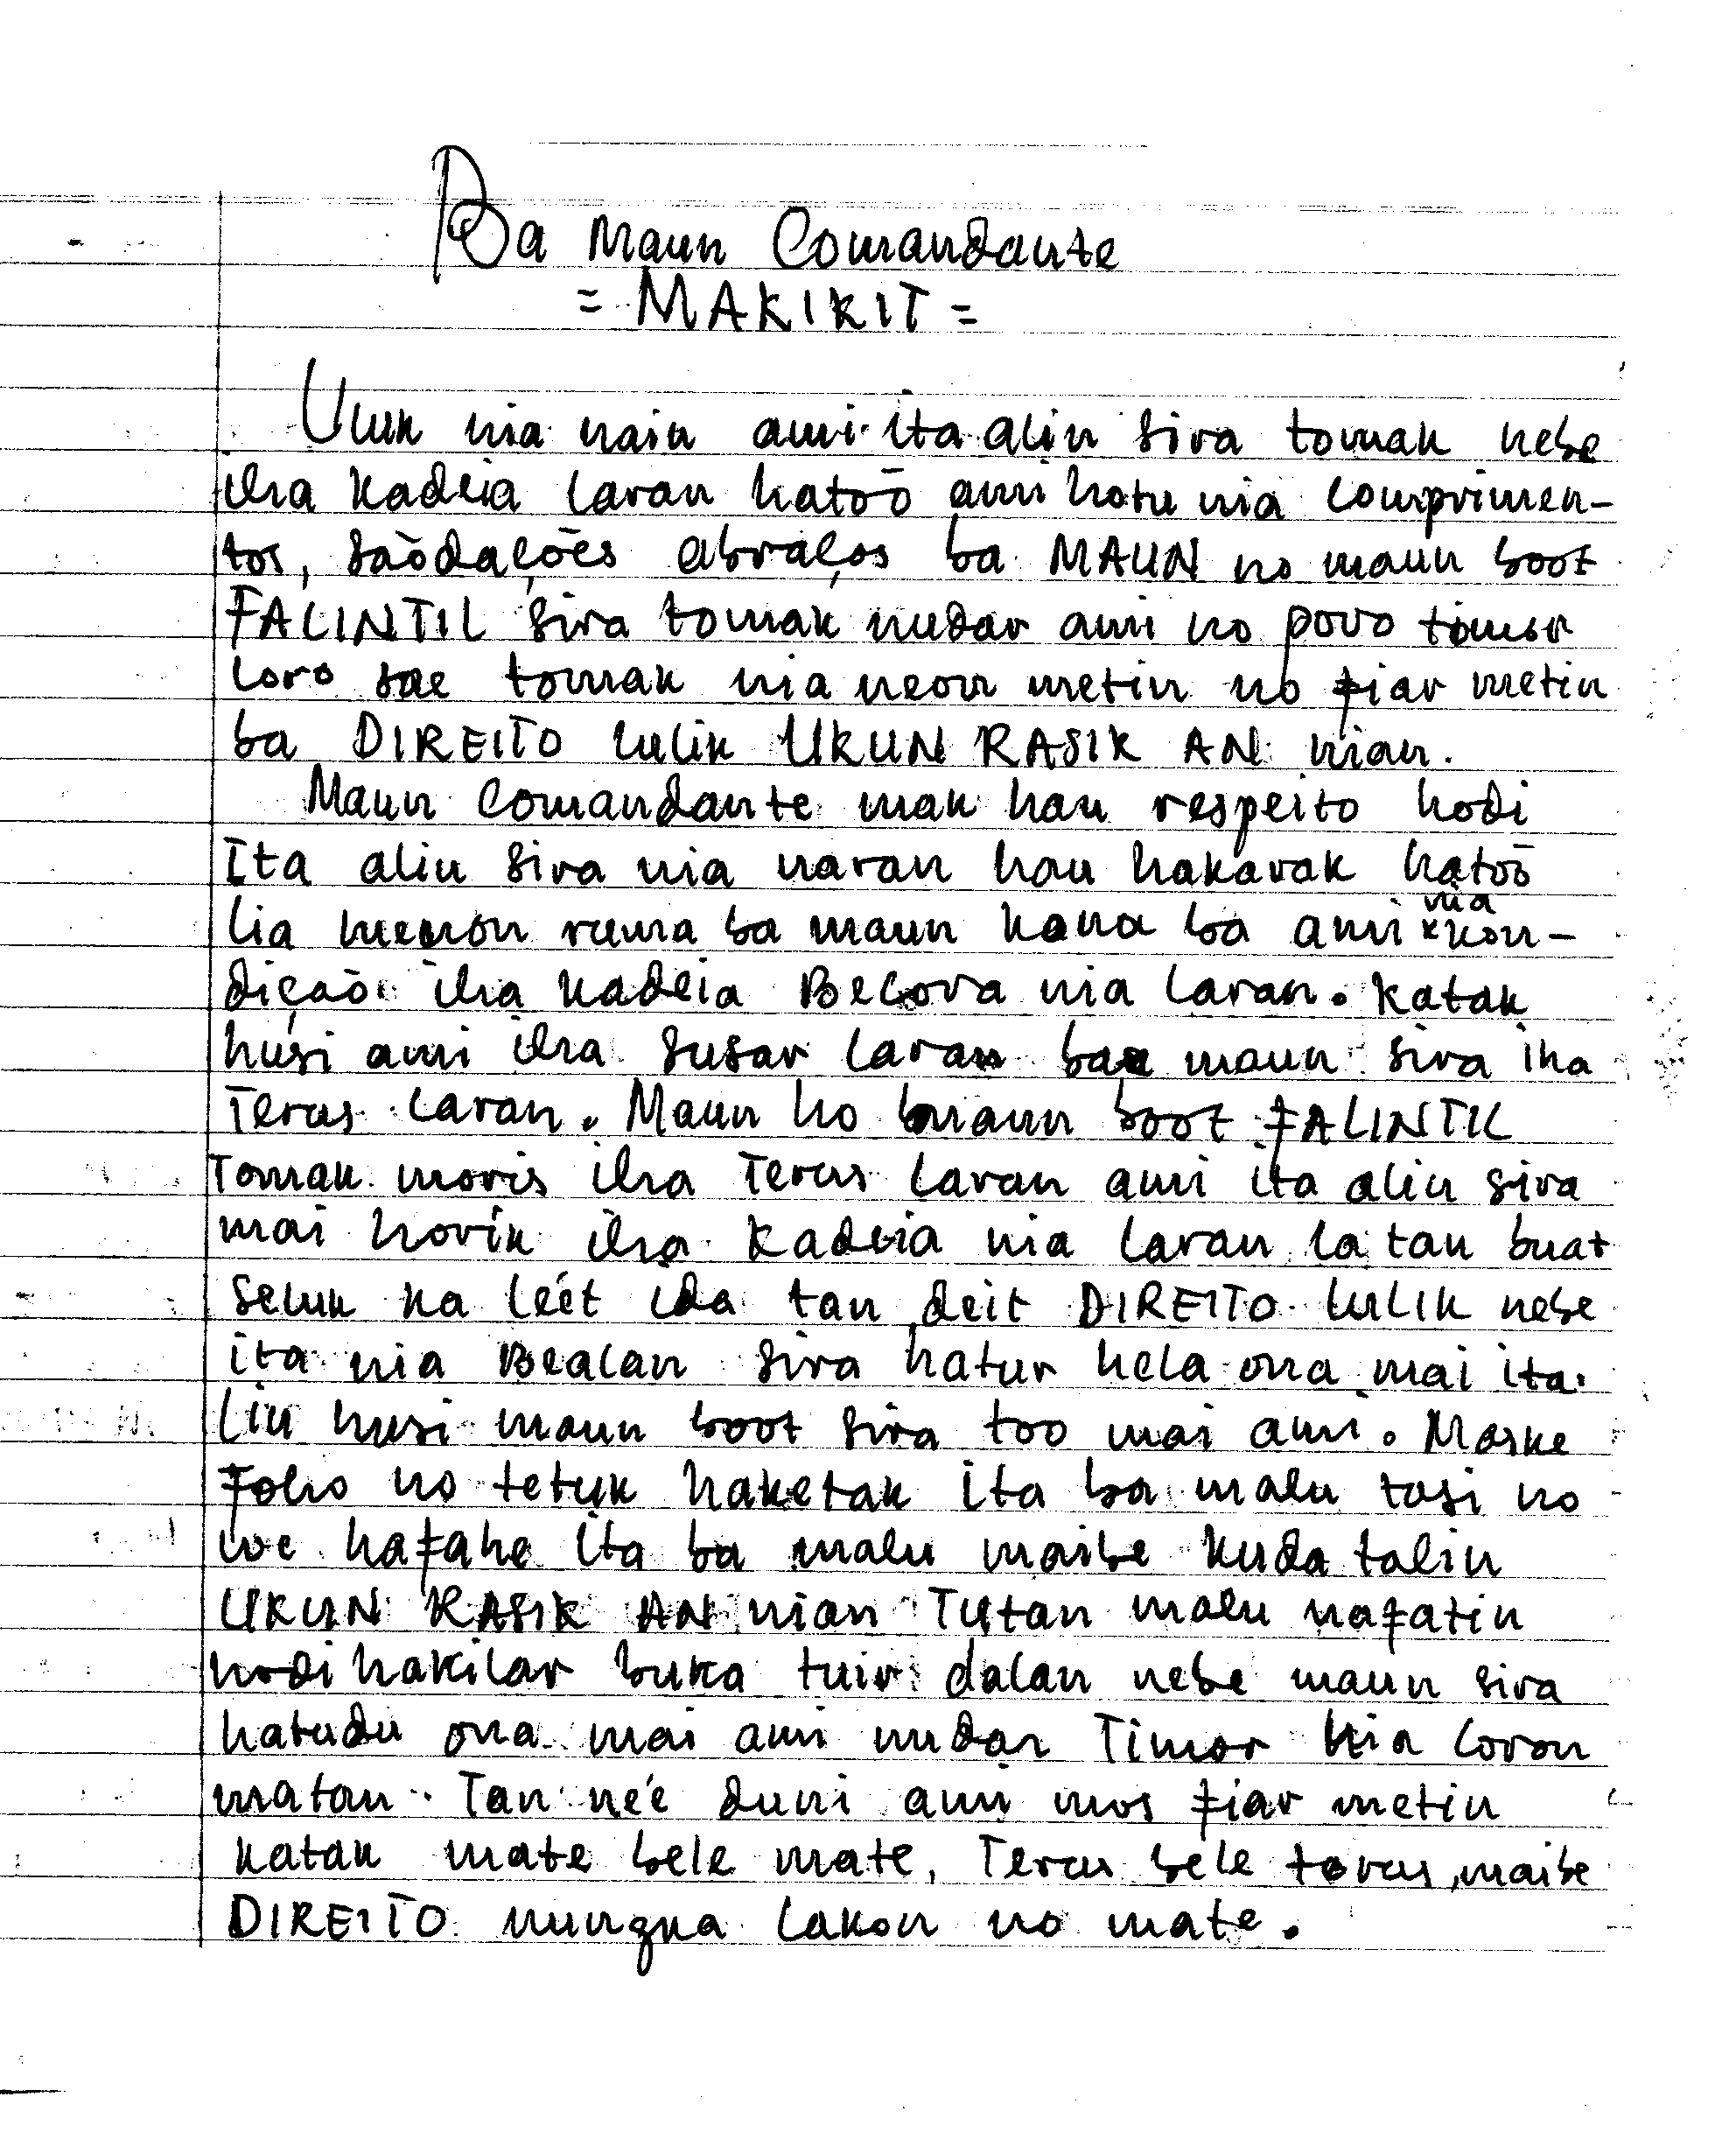 Ba Maun Comandante
= MAKIKIT =
Uluk nia nain ami ita alin sira tomak nebe
iha kadeia laran hatoō ami hotu nia comprimen-
tos, saòdações abraços ba MAUN no maun boot
FALINTIL sira tomak nudar ami no povo timor
loro sae tomak nia neon metin no fiar metin
ba DIREITO lulik UKUN RASIK AN nian.
Maun Comandante mak hau respeito hodi
Ita alin sira nia naran hau hakarak hatoō
lia menon ruma ba maun kona ba ami nia kon-
diçaò iha kadeia Becora nia laran. Katak
husi ami iha susar laran ba maun sira iha
Terus laran. Maun ho maun boot FALINTIL
Tomak moris iha Terus laran ami ita alin sira
mai horik iha kadeia nia laran la tan buat
seluk ka leét ida tan deit DIREITO LULIK nebe
ita nia Bealan sira hatur hela ona mai ita.
liu husi maun boot sira too mai ami. Maske
Foho no tetuk haketak ita ba malu tasi no
we hafahe ita ba malu maibe kuda talin
UKUN RASIK AN nian Tutan malu nafatin
hodi hakilar buka tuir dalan nebe maun sira
hatudu ona mai ami nudar Timor nia loron
matan. Tan neé duni ami mos fiar metin
katak mate bele mate, Terus bele terus, maibe
DIREITO nungka lakon no mate.